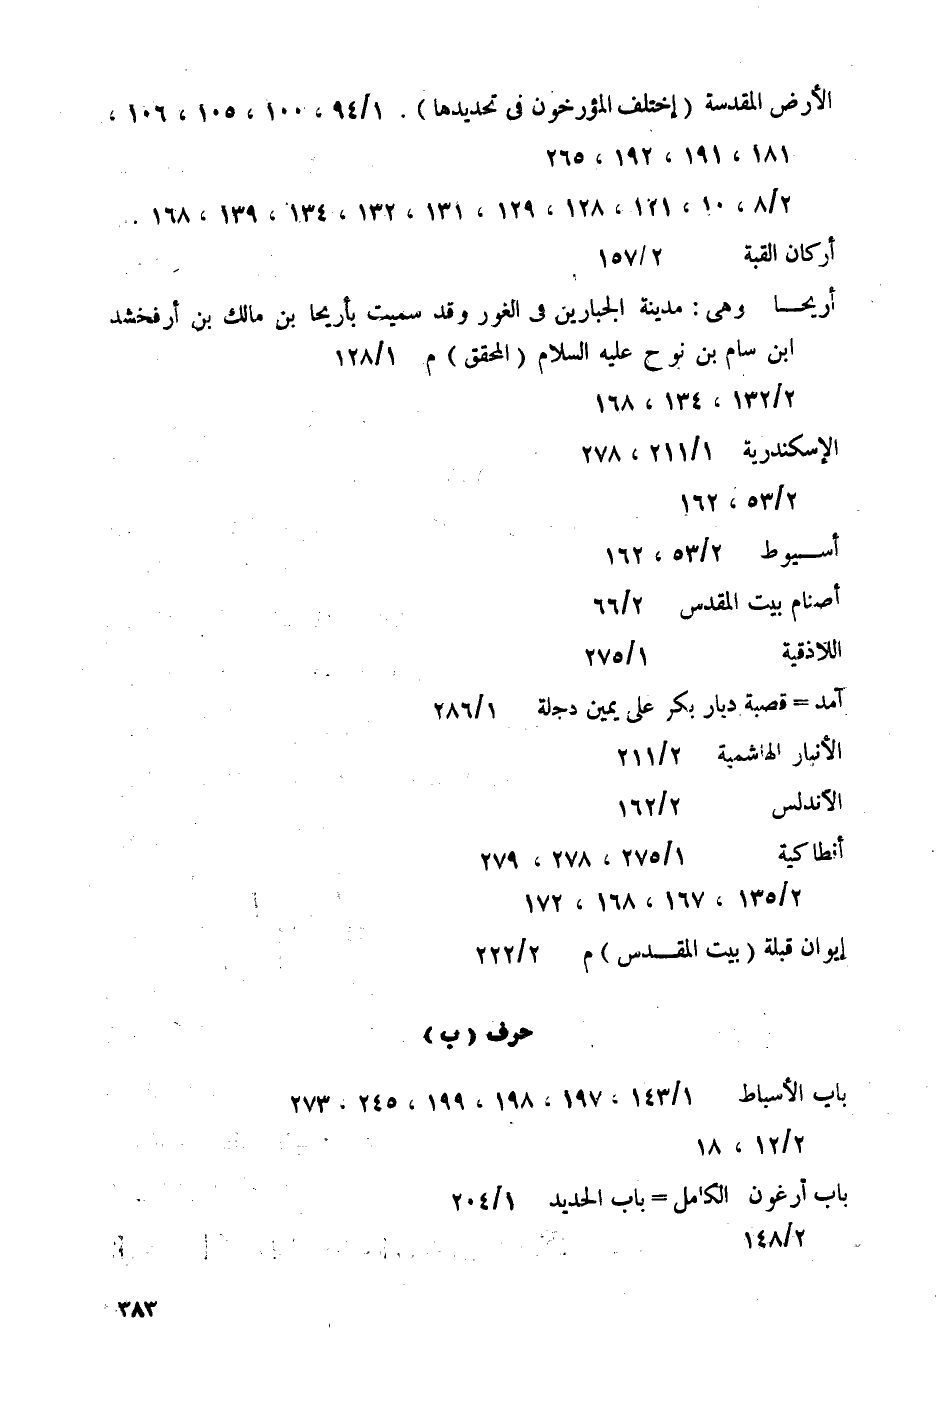 الأرض المقدسة ( إختلف المؤرخون فى تحديدها ) . ٩٤/١ ، ١٠٠ ، ١٠٥ ، ١٠٦ ،
١٨١ ، ١٩١ ، ١٩٢ ، ٢٦٥
٨/٢ ، ١٠ ، ١٢١ ، ١٢٨ ، ١٢٩ ، ١٣١ ، ١٣٢ ، ١٣٤ ، ١٣٩ ، ١٦٨ .
أركان القبة ١٥٧/٢
أريحـــا وهى : مدينة الجبارين فى الغور وقد سميت بأريحا بن مالك بن أرفخشد
ابن سام بن نوح عليه السلام ( المحقق ) م ١٢٨/١
١٣٢/٢ ، ١٣٤ ، ١٦٨
الإسكندرية ٢١١/١ ، ٢٧٨
٥٣/٢ ، ١٦٢
أســـيوط ٥٣/٢ ، ١٦٢
أصنام بيت المقدس ٦٦/٢
اللاذقية ٢٧٥/١
آمد = قصبة ديار بكر على يمين دجلة ٢٨٦/١
الأنبار الهاشمية ٢١١/٢
الأندلس ١٦٢/٢
أنطاكية ٢٧٥/١ ، ٢٧٨ ، ٢٧٩
١٣٥/٢ ، ١٦٧ ، ١٦٨ ، ١٧٢
إيوان قبلة ( بيت المقـــدس ) م ٢٢٢/٢
حرف ( ب )
باب الأسباط ١٤٣/١ ، ١٩٧ ، ١٩٨ ، ١٩٩ ، ٢٤٥ . ٢٧٣
١٢/٢ ، ١٨
باب أرغون الكامل = باب الحديد ٢٠٤/١
١٤٨/٢
٣٨٣